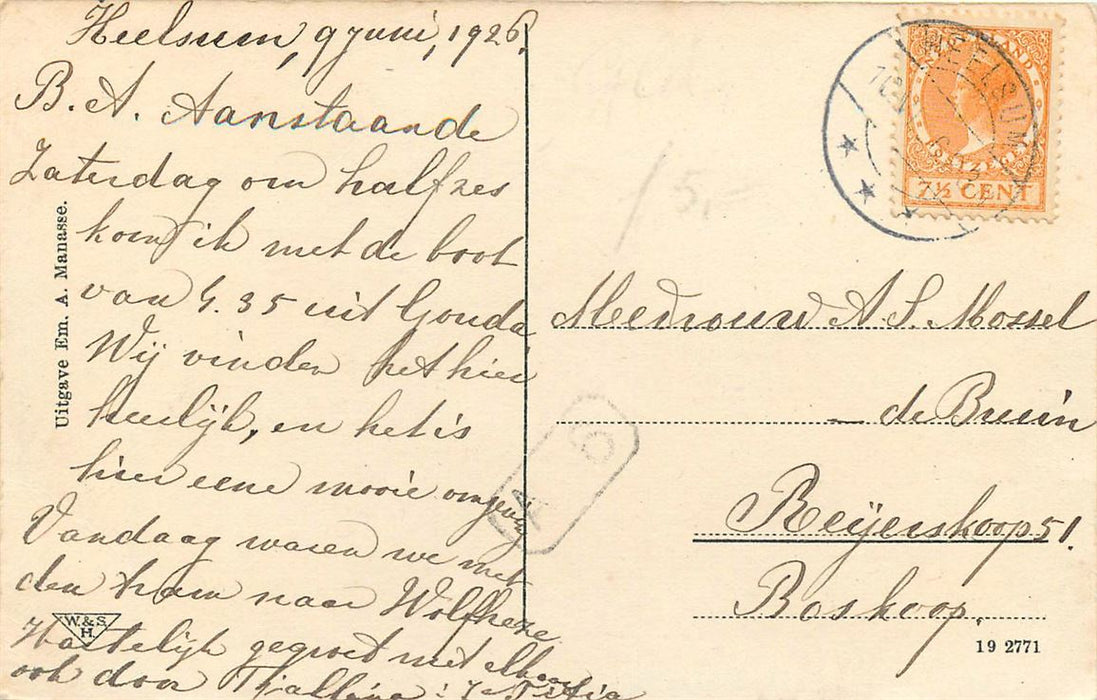 Heelsum, 9 juni, 1926.
B. A. Aanstaande
Zaterdag om halfzes
kom ik met de boot
van 4.35 uit Gouda
Wij vinden het hier
heerlijk, en het is
hier eene mooie omgeving
Vandaag waren we met
den tram naar Wolfheze
Hartelijk gegroet met elkaar
ook door
Uitgave Em. A. Manasse.
W. & S.
H.
/ 5,-
HEELSUM
NEDERLAND
7½ CENT
Mevrouw A. S. Mossel
- de Bruin
Reijerskoop 51.
Boskoop.
19 2771